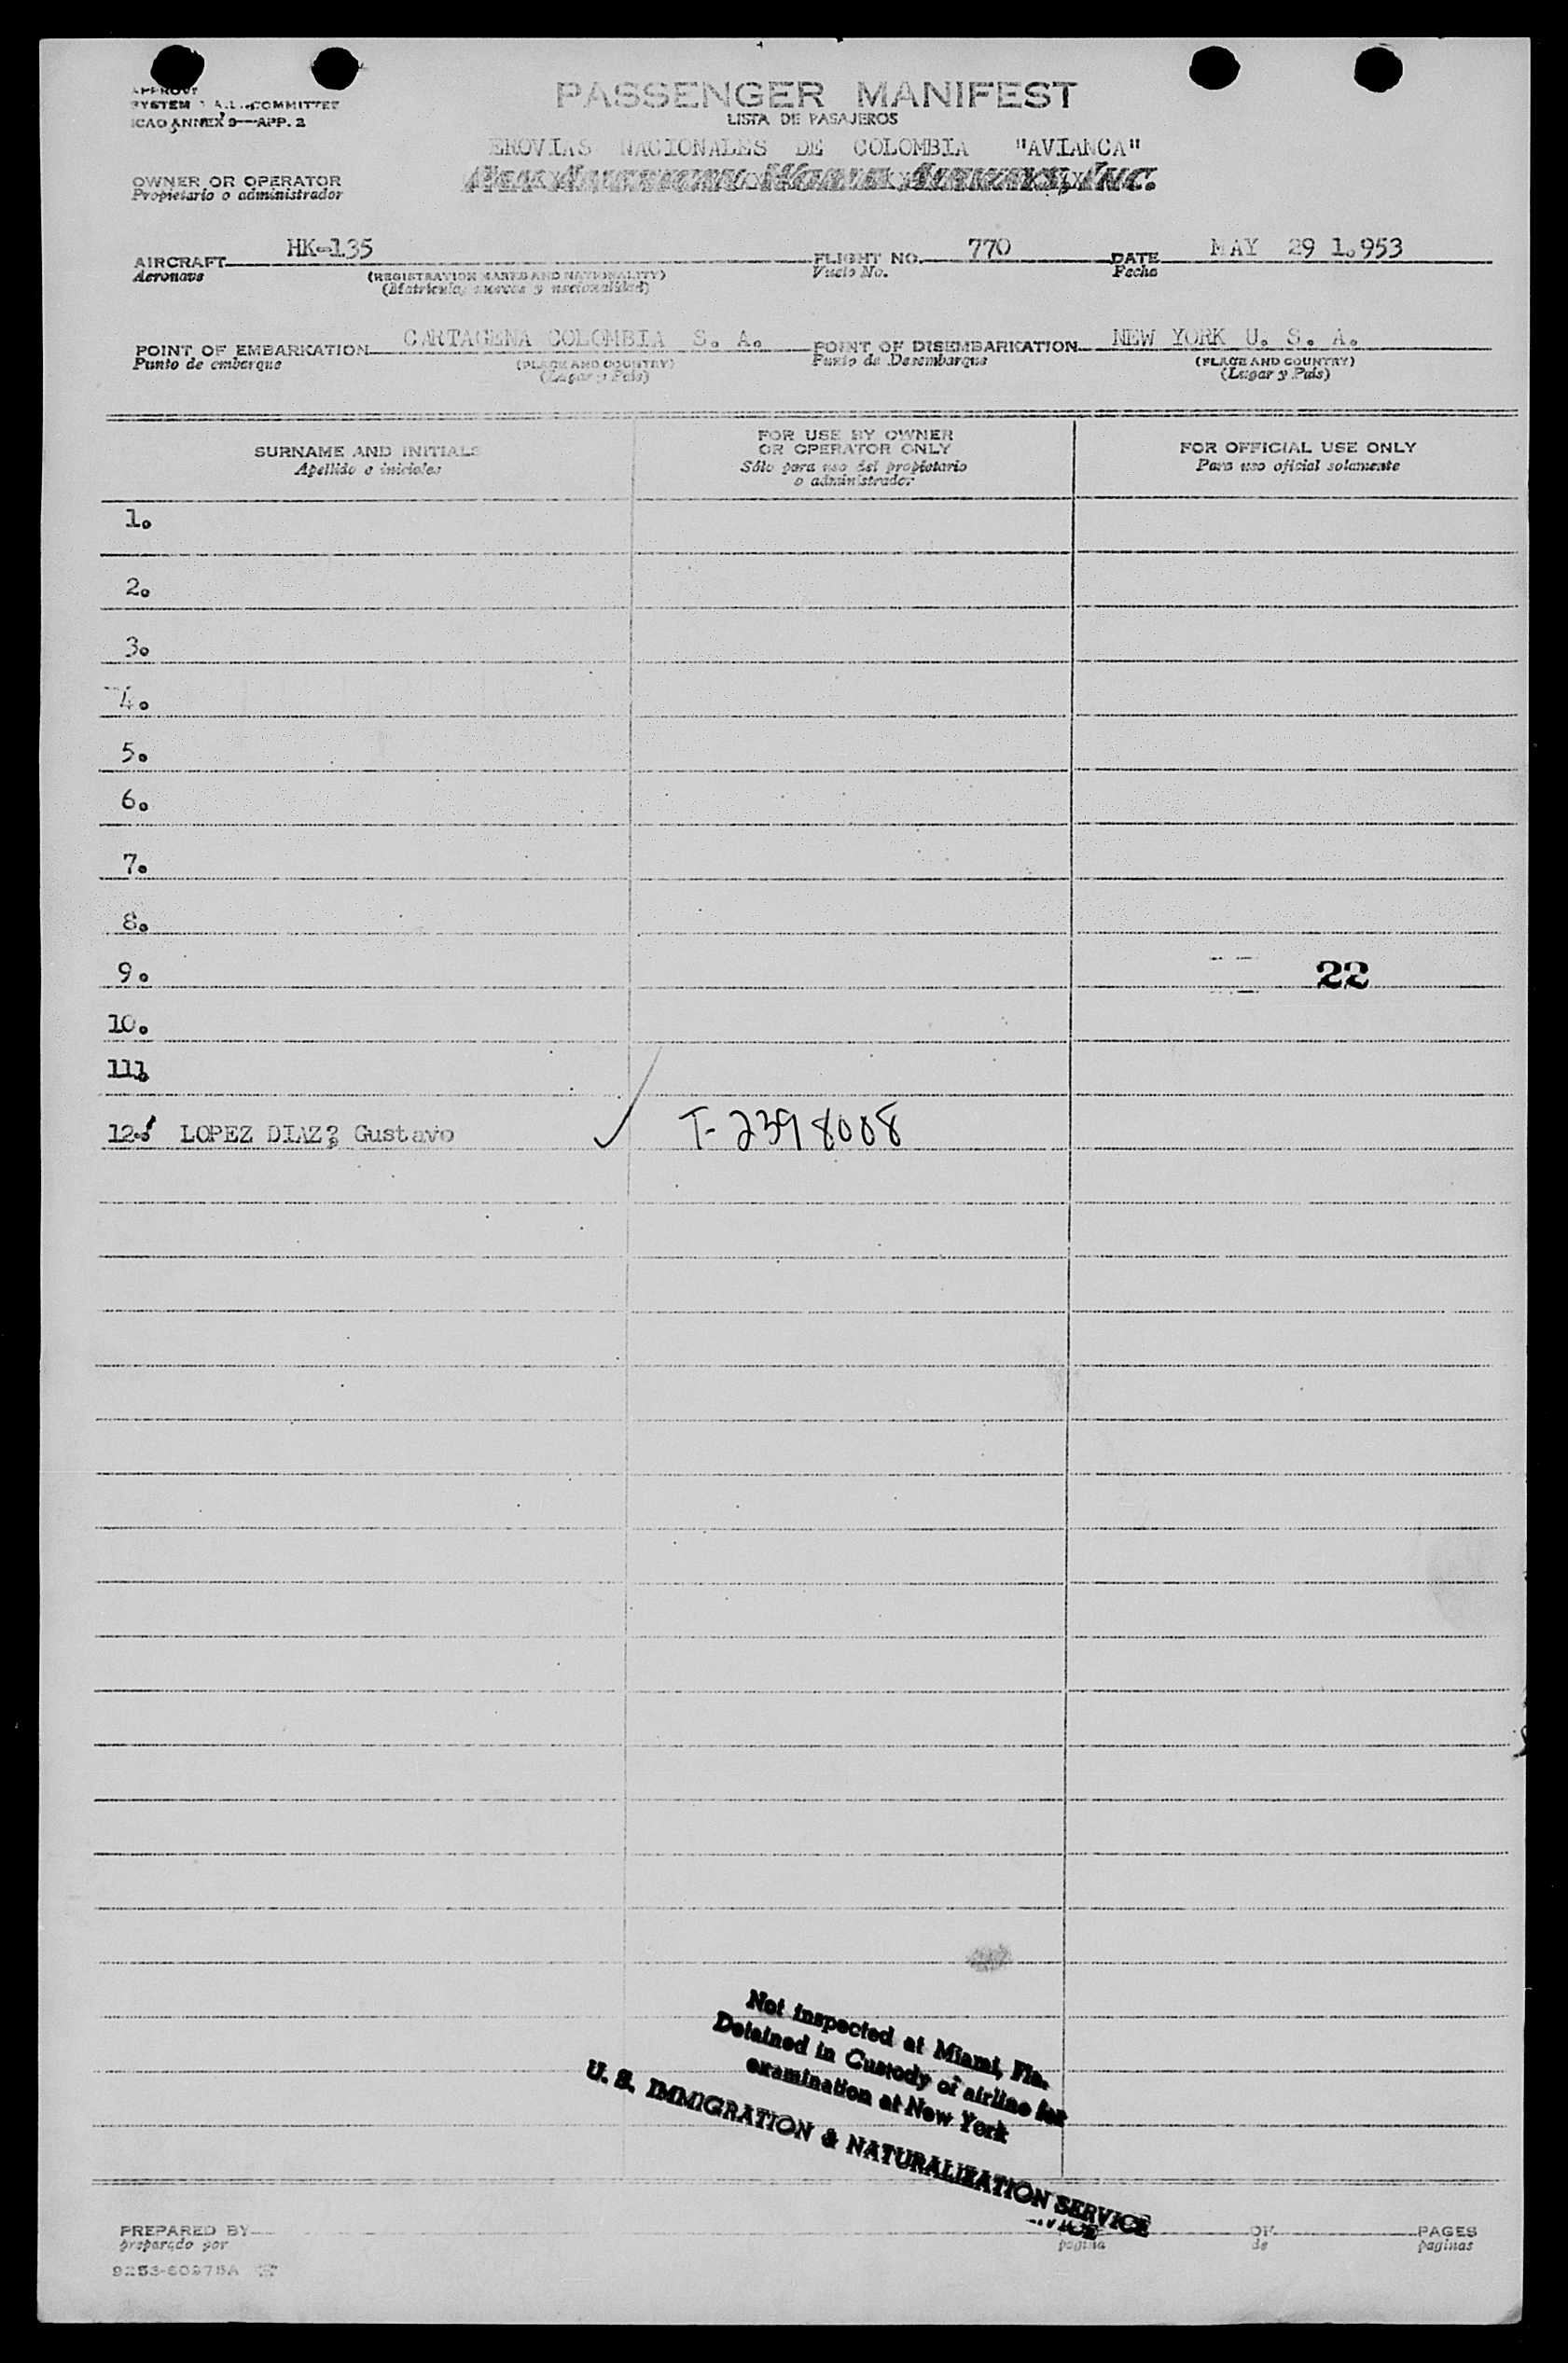 SYSTEM COMMITTEE
ICAO ANNEX 9—APP. 2
PASSENGER MANIFEST
LISTA DE PASAJEROS
EROVIAS NACIONALES DE COLOMBIA "AVIANCA"
OWNER OR OPERATOR
Propietario o administrador
PAN AMERICAN WORLD AIRWAYS, INC.
AIRCRAFT HK-135 FLIGHT NO. 770 DATE MAY 29 1.953
Aeronave (REGISTRATION MARKS AND NATIONALITY) Vuelo No. Fecha
(Matricula, marcas y nacionalidad)
POINT OF EMBARKATION CARTAGENA COLOMBIA S. A. POINT OF DISEMBARKATION NEW YORK U. S. A.
Punto de embarque (PLACE AND COUNTRY) Punto de Desembarque (PLACE AND COUNTRY)
(Lugar y País) (Lugar y País)
SURNAME AND INITIALS
Apellido e iniciales
FOR USE BY OWNER
OR OPERATOR ONLY
Sólo para uso del propietario
o administrador
FOR OFFICIAL USE ONLY
Para uso oficial solamente
1.
2.
3.
4.
5.
6.
7.
8.
9. 22
10.
11.
12. LOPEZ DIAZ, Gustavo ✓ T-2398008
Not inspected at Miami, Fla.
Detained in Custody of airline for
examination at New York
U. S. IMMIGRATION & NATURALIZATION SERVICE
PREPARED BY OF PAGES
preparado por pagina de paginas